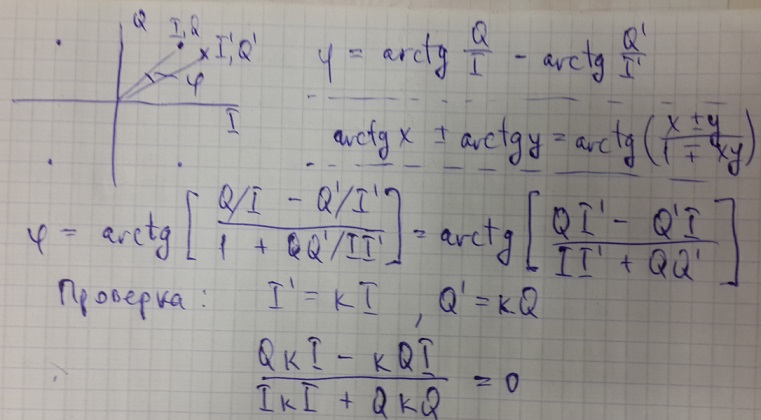 Q
I,Q
I'Q'
φ
I
φ = arctg Q/I - arctg Q'/I'
arctg x ± arctg y = arctg (x ± y / 1 ∓ xy)
φ = arctg [Q/I - Q'/I' / 1 + QQ'/II'] = arctg [QI' - Q'I / II' + QQ']
Проверка: I' = kI, Q' = kQ
QkI - kQI / IkI + QkQ = 0